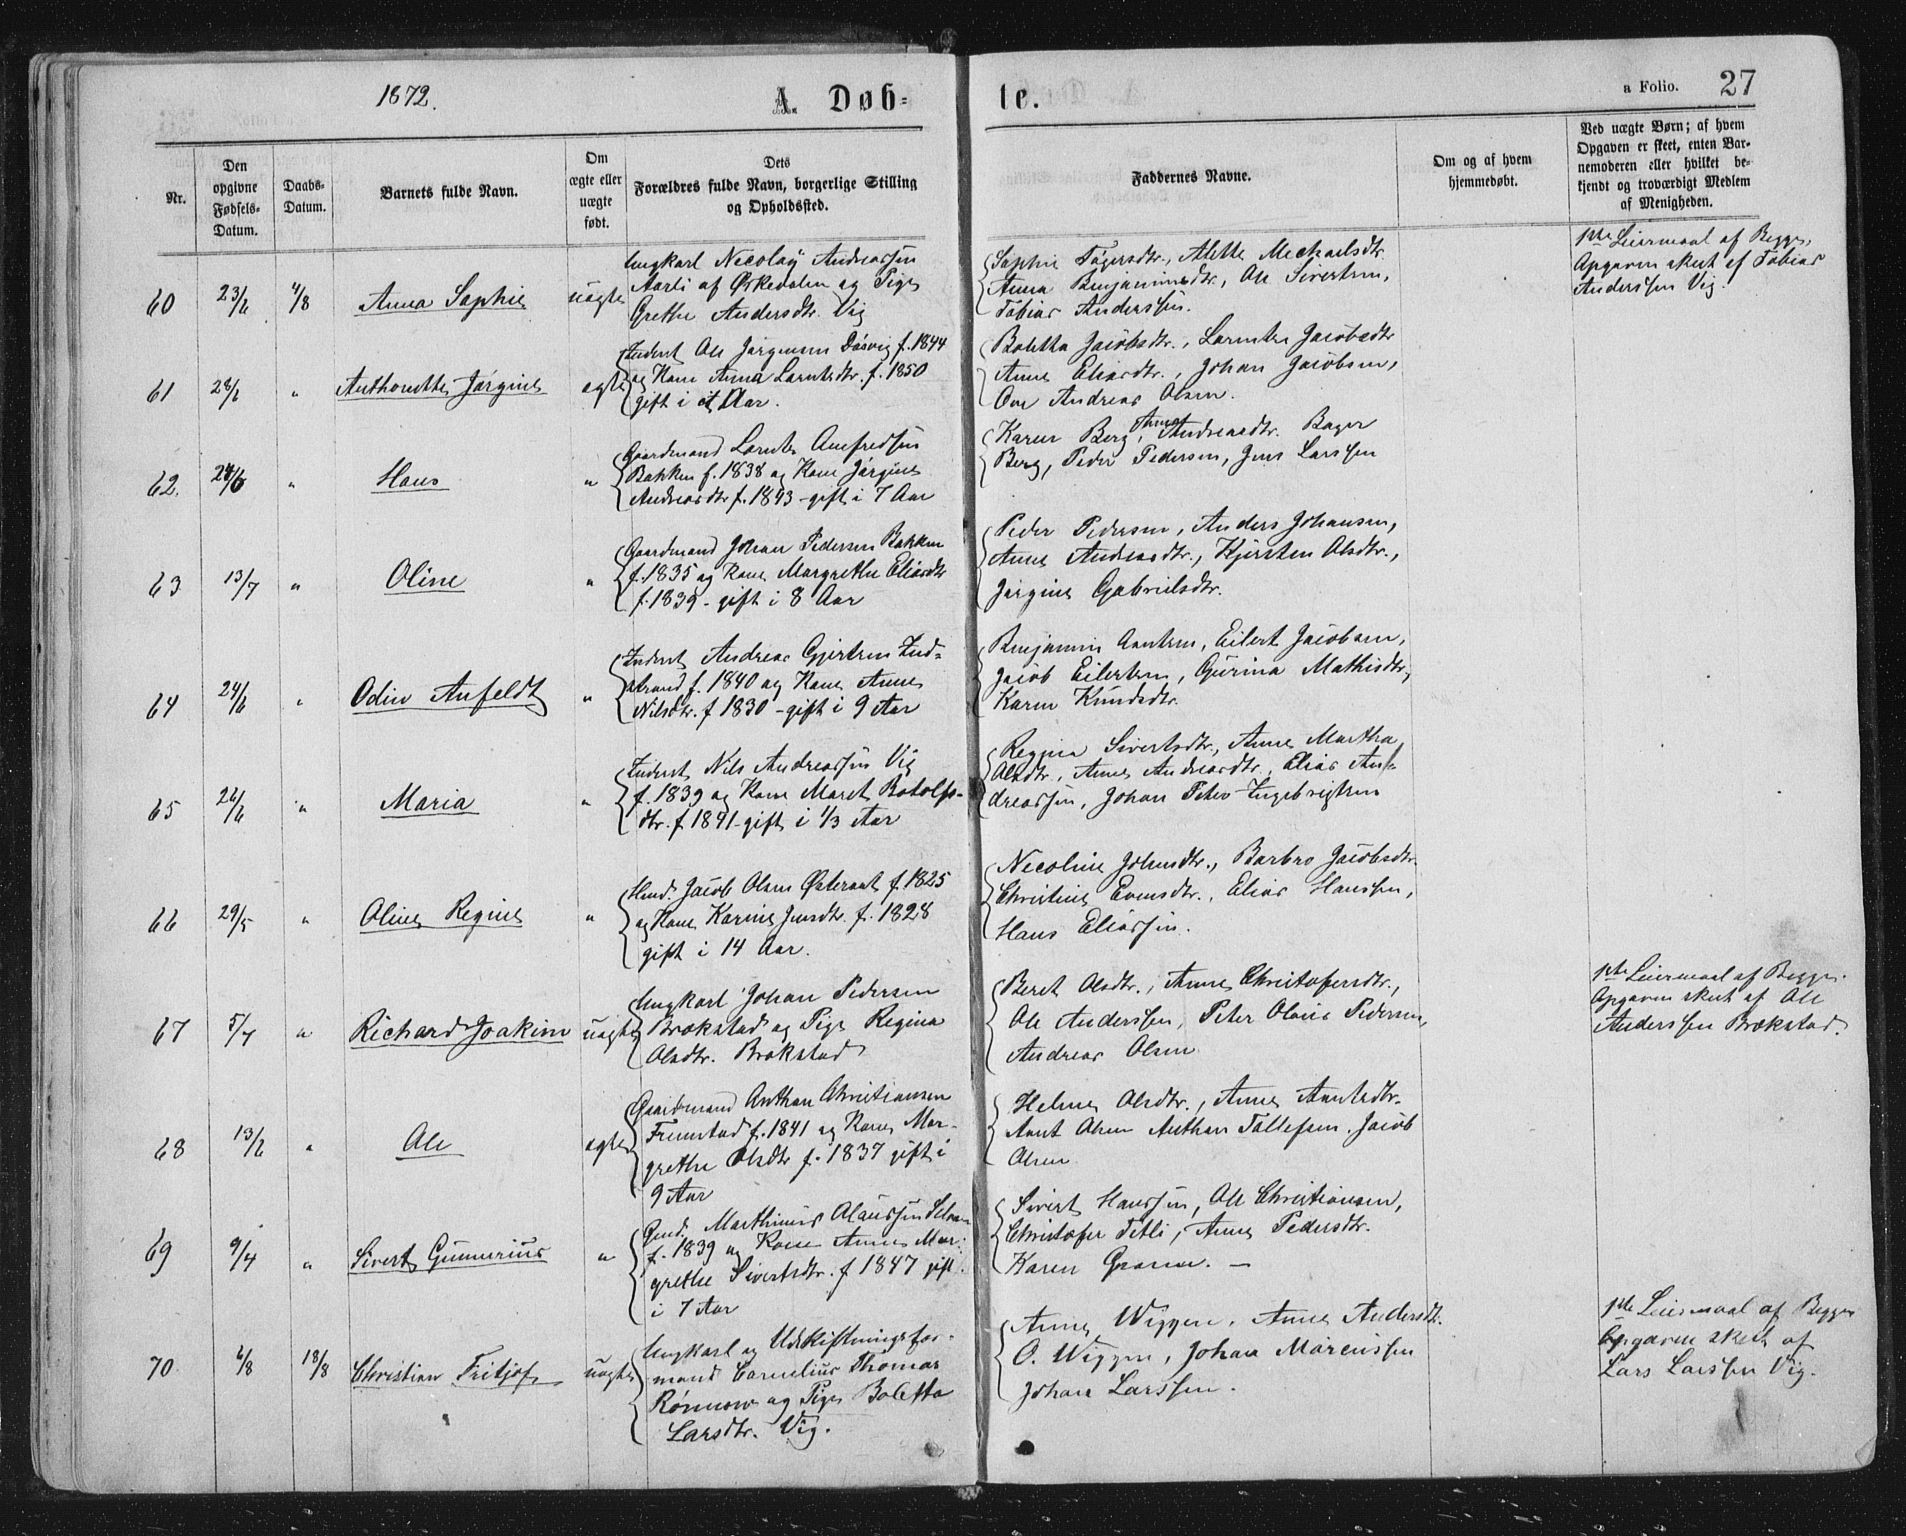 1872.
A. Døb=
te.
a Folio. 27
Nr.
Den opgivne Fødsels-Datum.
Daabs-Datum.
Barnets fulde Navn.
Om ægte eller uægte født.
Dets Forældres fulde Navn, borgerlige Stilling og Opholdssted.
Faddernes Navne.
Om og af hvem hjemmedøbt.
Ved uægte Børn; af hvem Opgaven er skeet, enten Barnemoderen eller hvilket bekjendt og troværdigt Medlem af Menigheden.
60 23/6 4/8 Anna Sophie uægte
Ungkarl Necolay Andreassen
Aarli af Ørkedalen og Pige
Grethe Andersdtr. Vig
Sophie Tøgersdtr., Alette Mechaelsdtr.
Anna Benjaminsdtr, Ole Sivertsen,
Tobias Anderssen.
1ste Leiermaal af Begge.
Opgaven skeet af Tobias
Anderssen Vig.
61 28/6 " Anthonette Jørgine ægte
Inderst Ole Jørgensen Døsvig f. 1844
og Kone Anna Larntsdtr. f. 1850
gift i et Aar.
Boletta Jacobsdtr., Larntse Jacobsdtr
Anne Eliasdtr., Johan Jacobsen,
Ove Andreas Olsen.
62. 24/6 " Hans "
Gaardmand Larnts Amfredsen
Bakken f. 1838 og Kone Jørgine
Andreasdtr f. 1843 - gift i 7 Aar
Karen Berg, Anna Andreasdtr. Bager
Berg, Peder Pedersen, Jens Larssen
63 13/7 " Oline "
Gaardmand Johan Pedersen Bakken
f. 1835 og Kone Margrethe Eliasdtr
f. 1839 - gift i 8 Aar
Peder Pedersen, Anders Johansen,
Anne Andreasdtr., Kjersten Olsdtr.,
Jørgine Gabrielsdtr.
64 24/6 " Odin Anfeldt "
Inderst Andreas Gjertsen Ind=
strand f. 1840 og Kone Anne
Nilsdtr. f 1830 - gift i 9 Aar
Benjamin Arntsen, Eilert Jacobsen,
Jacob Eilertsen, Gurina Mathisdtr,
Karen Knudsdtr.
65 26/6 " Maria "
Inderst Nils Andreassen Vig
f. 1839 og Kone Maret Botolfs-
dtr. f 1841 - gift i 1/3 Aar
Regina Sivertsdtr., Anne Martha
Olsdtr., Anne Andreasdtr., Elias An-
dreassen, Johan Peter Ingebrigtsen
66 29/5 " Oline Regine "
Hmd. Jacob Olsen Østeraat f. 1825
og Kone Karine Jensdtr. f. 1828
gift i 14 Aar.
Necoline Johnsdtr., Barbro Jacobsdtr.
Christine Evensdtr., Elias Hanssen,
Hans Eliassen.
67 5/7 " Richard Joakim uægte
Ungkarl Johan Pedersen
Brækstad og Pige Regina
Olsdtr. Brækstad
Beret Olsdtr., Anne Christofersdtr.,
Ole Anderssen, Peter Olaus Pedersen,
Andreas Olsen
1ste Leiermaal af Begge.
Opgaven skeet af Ole
Anderssen Brækstad.
68 13/6 " Ole ægte
Gaardmand Anthon Christiansen
Fremstad f. 1841 og Kone Mar-
grethe Olsdtr f. 1837 gift i
9 Aar
Helene Olsdtr., Anne Arntsdtr.
Arnt Olsen Anthon Tollefsen, Jacob
Olsen
69 9/4 " Sivert Gunnerius "
Gmd. Marthinus Olaussen
f. 1839 og Kone Anne Mar-
grethe Sivertsdtr. f 1847 gift
i 7 Aar
Sivert Hanssen, Ole Christiansen,
Christofer Tetli, Anne Pedersdtr.
Karen
70. 6/8 18/8 Christian Fritjof uægte
Ungkarl og Udskiftningsfor-
mand Cornelius Thomas
Rønnow og Pige Boletta
Larsdtr. Vig.
Anne Wiggen, Anne Andersdtr.
O. Wiggen, Johan Marcussen
Johan Larssen.
1ste Leiermaal af Begge
Opgaven skeet af
Lars Larssen Vig.